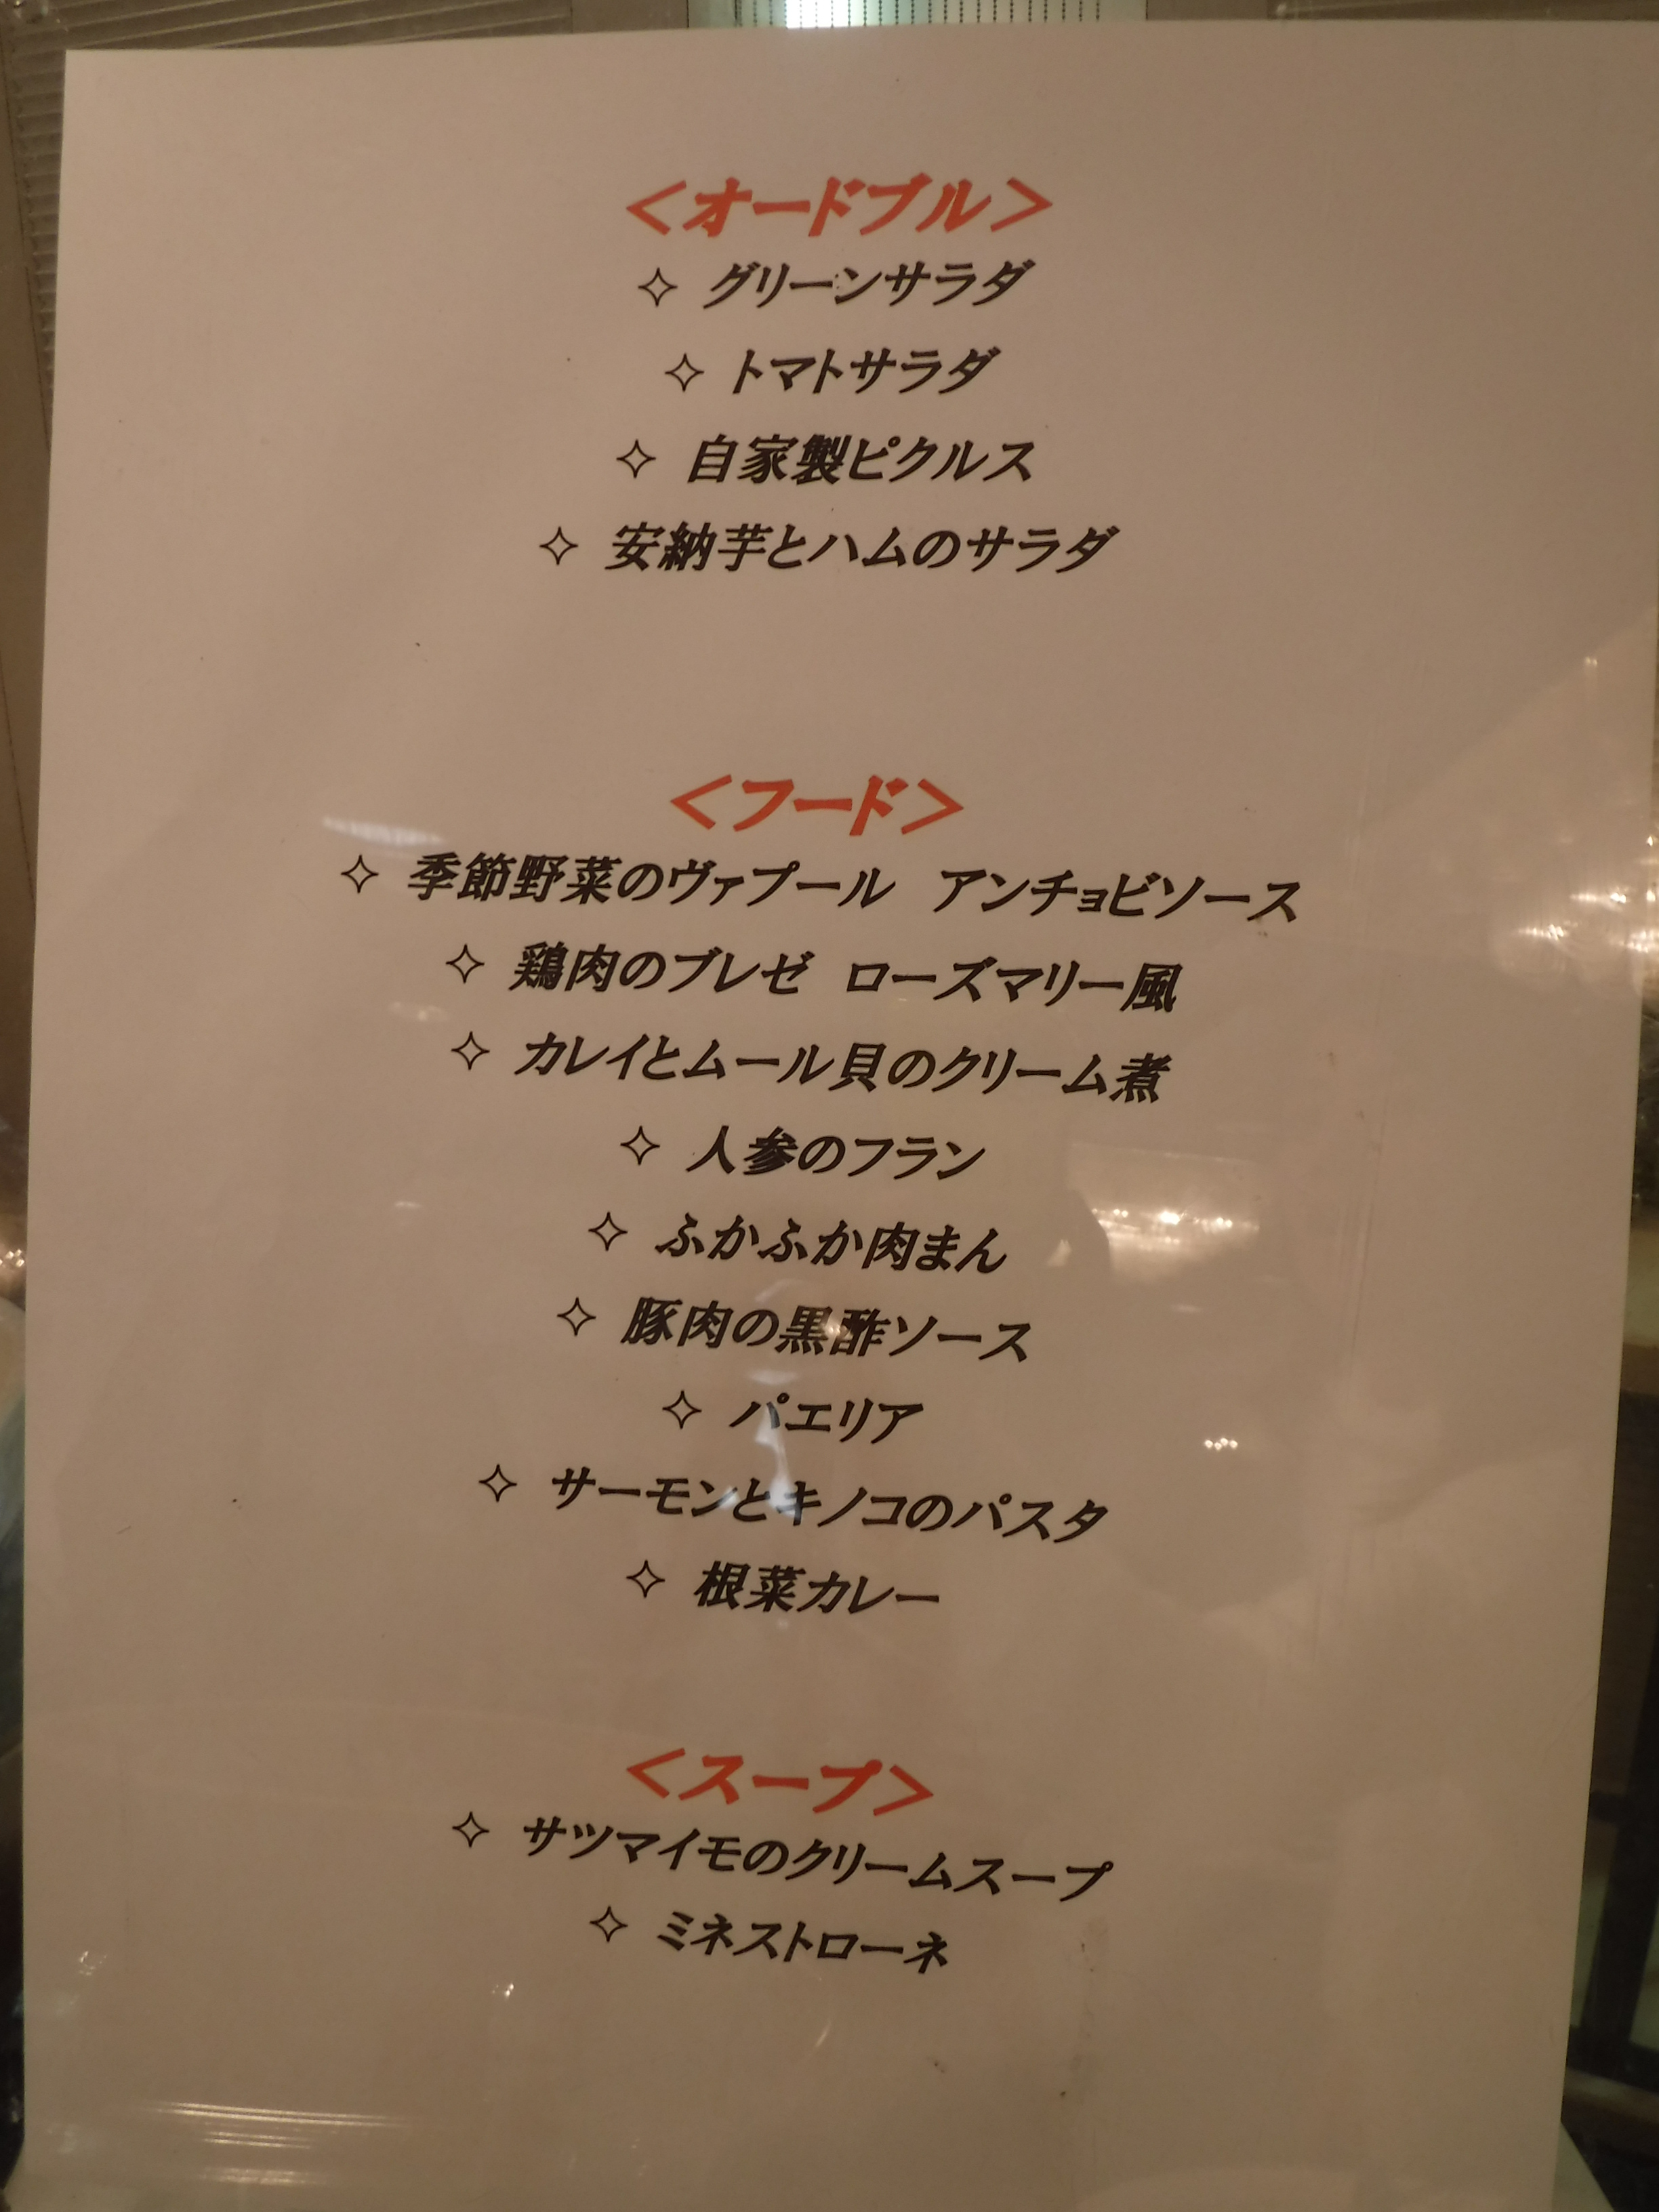 ＜オードブル＞
✧ グリーンサラダ
✧ トマトサラダ
✧ 自家製ピクルス
✧ 安納芋とハムのサラダ
＜フード＞
✧ 季節野菜のヴァプール　アンチョビソース
✧ 鶏肉のブレゼ　ローズマリー風
✧ カレイとムール貝のクリーム煮
✧ 人参のフラン
✧ ふかふか肉まん
✧ 豚肉の黒酢ソース
✧ パエリア
✧ サーモンとキノコのパスタ
✧ 根菜カレー
＜スープ＞
✧ サツマイモのクリームスープ
✧ ミネストローネ